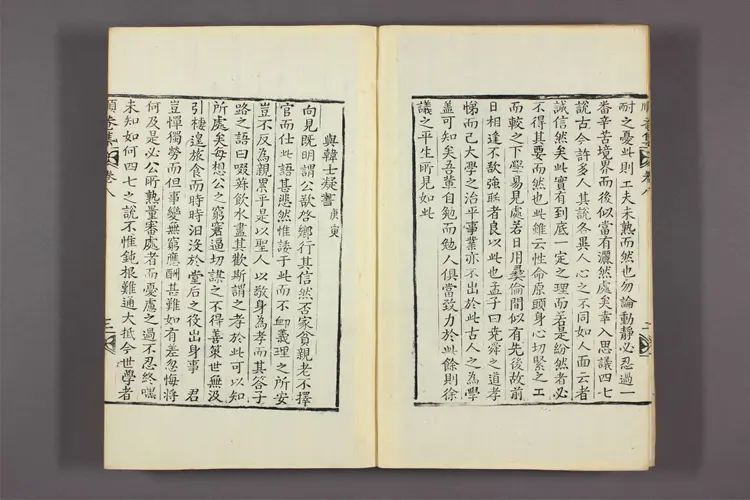 耐之憂此則工夫未熟而然也勿論動靜必忍過一
番辛苦境界而後似當有灑然處矣幸入思議四七
說古今許多人其說各異人心之不同如人面云者
誠信然矣此實有到底一定之理而若是紛然者必
不得其要而然也此雖云性命原頭身心切緊之工
而較之下學易見處若日用彛倫間似有先後故前
日相逢不敢強聒者良以此也孟子曰堯舜之道孝
悌而已大學之治平事業亦不出於此古人之爲學
蓋可知矣吾輩自勉而勉人俱當致力於此餘則徐
議之平生所見如此
與韓士凝書庚寅
向見旣明謂公欲啓鄕行其信然否家貧親老不擇
官而仕此語甚悲然惟諉于此而不䘏義理之所安
豈不反爲親累乎是以聖人以敬身爲孝而其答子
路之語曰啜菽飮水盡其歡斯謂之孝於此可以知
所處矣每想公之窮窘逼切謀之不得善策世無汲
引棲遑旅食而時時汨沒於堂后之後出身事君
豈憚獨勞而但事變無窮應酬甚難如有差忽悔將
何及是必公所熟量審處者而憂慮之過不忍終嘿
未知如何四七之說不惟鈍根難通大抵今世學者
順菴集 卷八 三